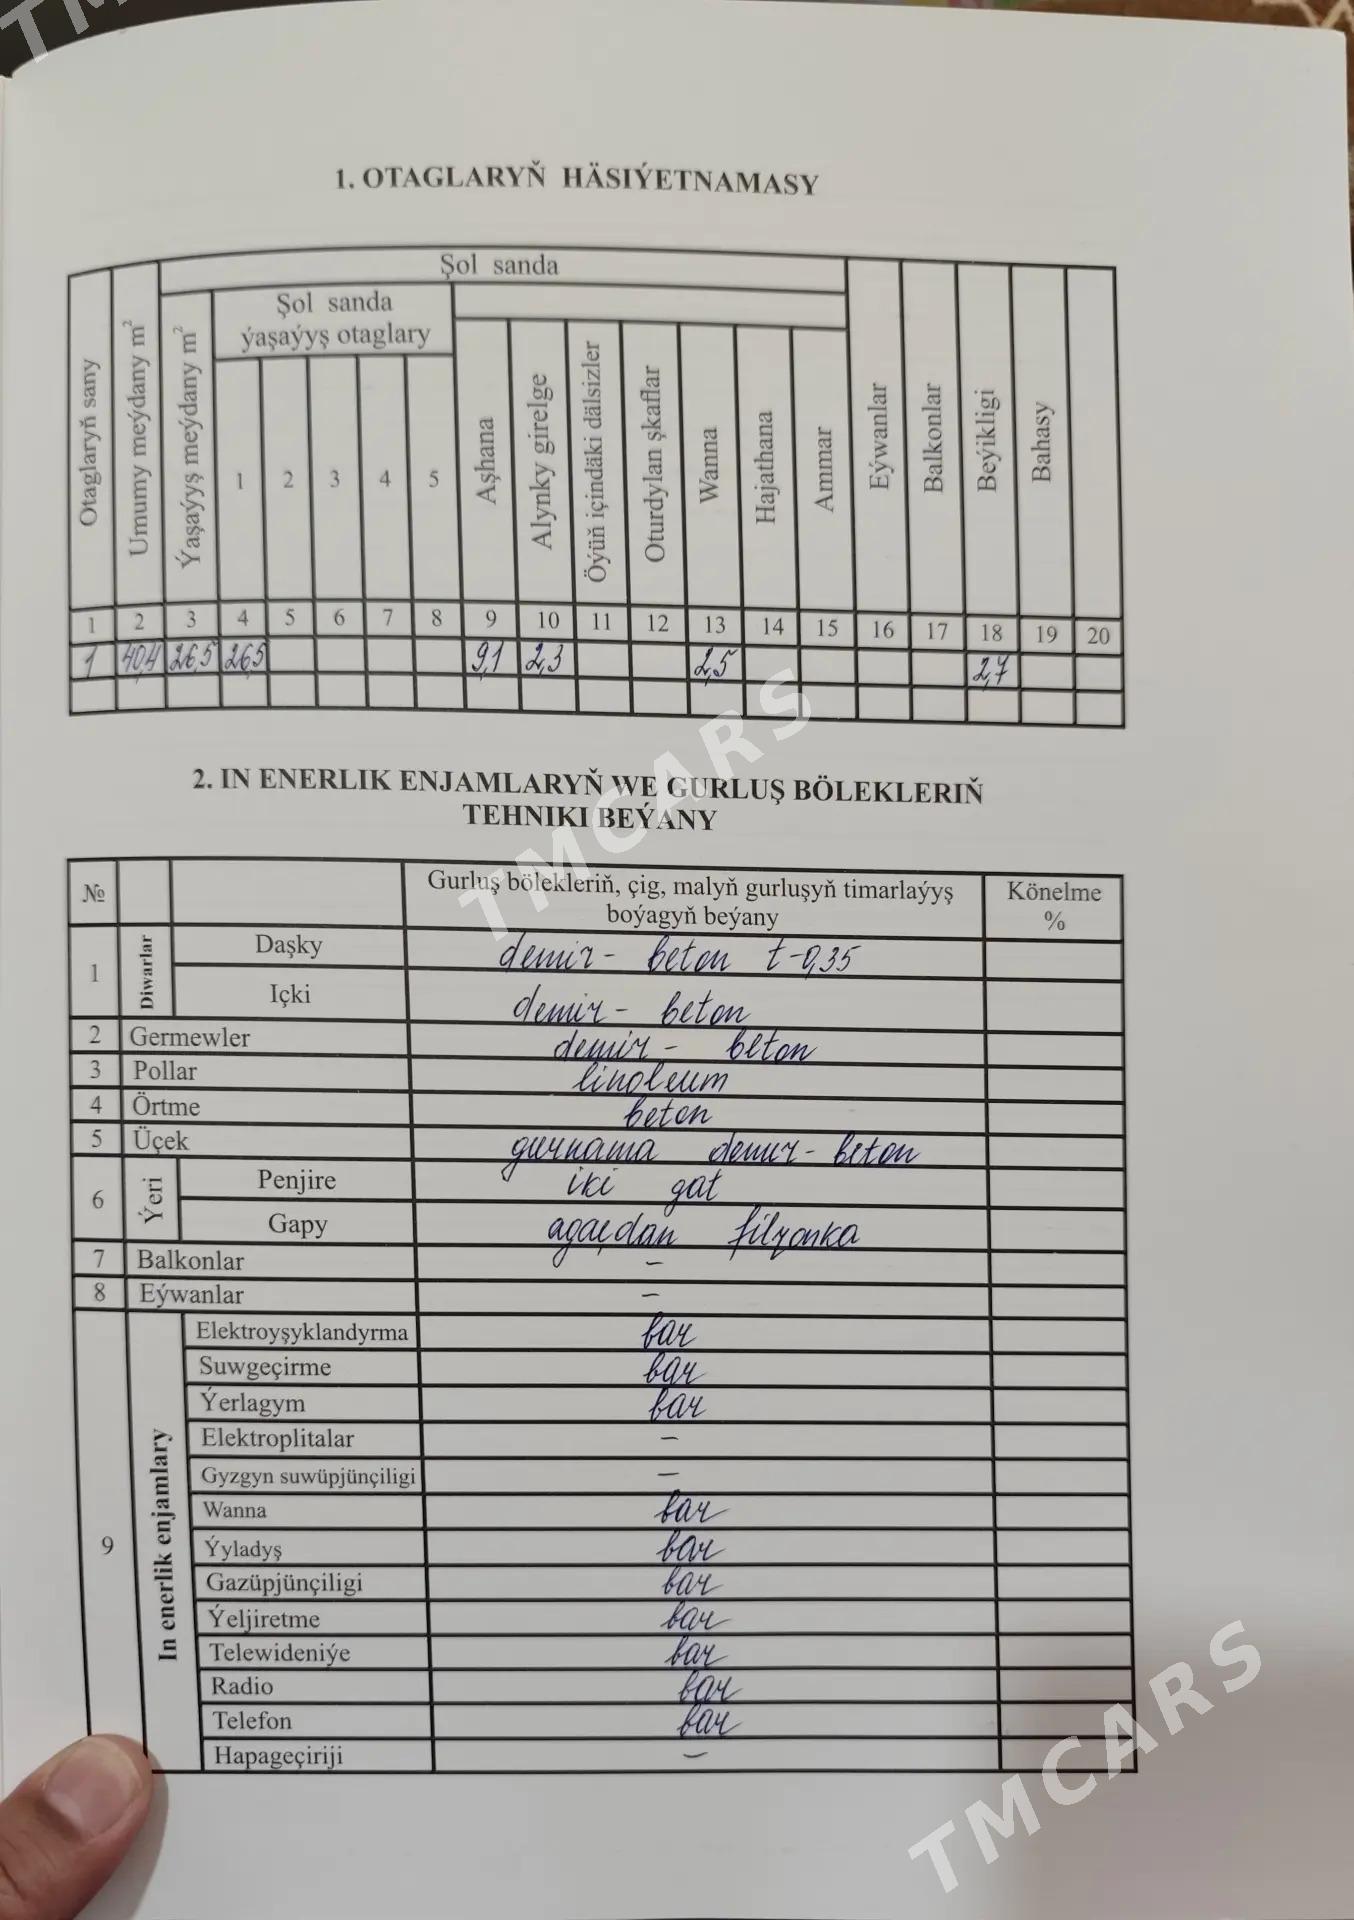 1. OTAGLARYŇ HÄSIÝETNAMASY
Şol sanda
Şol sanda
ýaşaýyş otaglary
Otaglaryň sany
Umumy meýdany m²
Ýaşaýyş meýdany m²
1 2 3 4 5
Aşhana
Alynky girelge
Öýüň içindäki dälsizler
Oturdylan şkaflar
Wanna
Hajathana
Ammar
Eýwanlar
Balkonlar
Beýikligi
Bahasy
1 2 3 4 5 6 7 8 9 10 11 12 13 14 15 16 17 18 19 20
1 40,4 26,5 26,5 9,1 2,3 2,5 2,7
2. IN ENERLIK ENJAMLARYŇ WE GURLUŞ BÖLEKLERIŇ
TEHNIKI BEÝANY
№
Gurluş bölekleriň, çig, malyň gurluşyň timarlaýyş
boýagyň beýany
Könelme
%
1 Diwarlar Daşky demir - beton t-0,35
Içki demir - beton
2 Germewler demir - beton
3 Pollar linoleum
4 Örtme beton
5 Üçek gurnama demir - beton
6 Ýeri Penjire iki gat
Gapy agaçdan filýonka
7 Balkonlar –
8 Eýwanlar –
9 In enerlik enjamlary
Elektroyşyklandyrma bar
Suwgeçirme bar
Ýerlagym bar
Elektroplitalar –
Gyzgyn suwüpjünçiligi –
Wanna bar
Ýyladyş bar
Gazüpjünçiligi bar
Ýeljiretme bar
Telewideniýe bar
Radio bar
Telefon bar
Hapageçiriji –
TMCARS
TMCARS